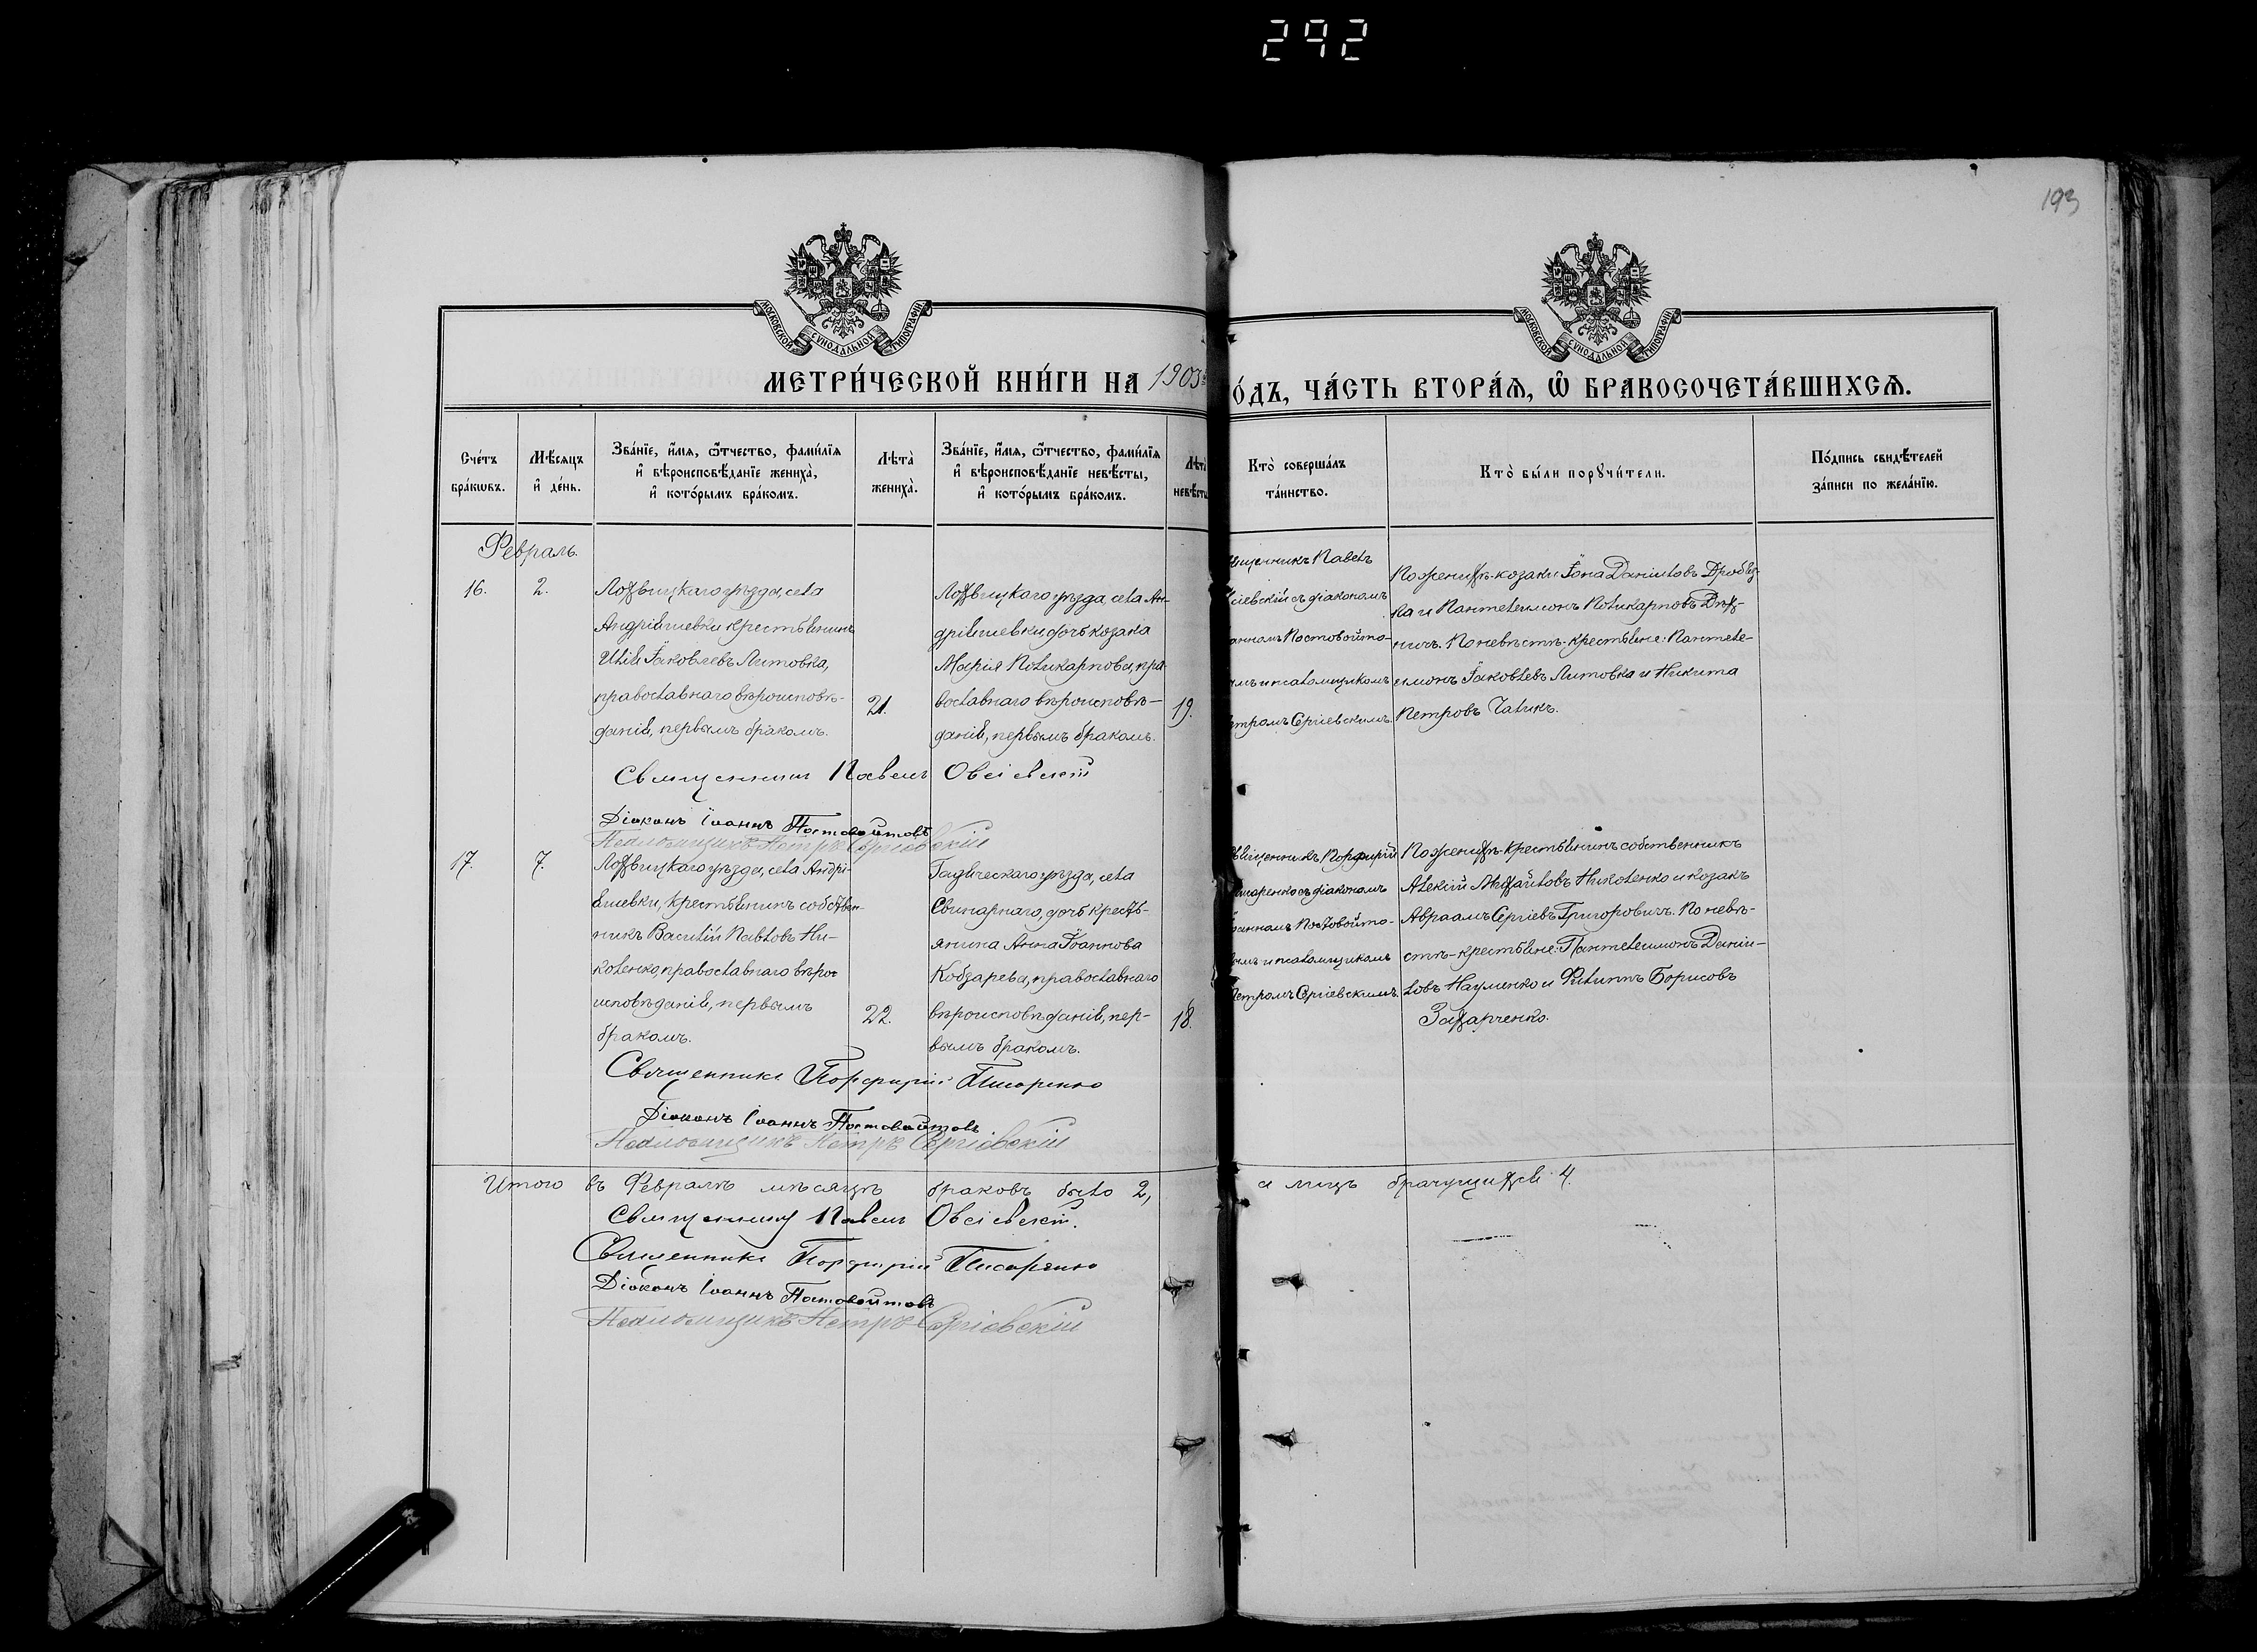 292
193
МОСКОВСКОЙ СѴНОДАЛЬНОЙ ТИПОГРАФІИ
МОСКОВСКОЙ СѴНОДАЛЬНОЙ ТИПОГРАФІИ
МЕТРИ́ЧЕСКОЙ КНИ́ГИ НА 1903
О́ДЪ, ЧА́СТЬ ВТОРА́Я, Ѿ БРАКОСОЧЕТА́ВШИХСЯ.
Сче́тъ бра́кѡвъ.
Мѣ́сяцъ и҆ де́нь.
Зва́нїе, и҆́мя, ѻ҆́тчество, фами́лїя
и҆ вѣроисповѣ́данїе жениха̀,
и҆ кото́рымъ бра́комъ.
Лѣта̀ жениха̀.
Зва́нїе, и҆́мя, ѻ҆́тчество, фами́лїя
и҆ вѣроисповѣ́данїе невѣ́сты,
и҆ кото́рымъ бра́комъ.
Лѣта̀ невѣ́сты
Кто̀ соверша́лъ та́инство.
Кто̀ бы́ли порꙋчи́тели.
По́дпись свидѣ́телей за́писи по жела́нїю.
Февраль.
16.
2.
Лохвицкаго уѣзда, села
Андріяшевки крестьянинъ
Илія Іаковлевъ Литовка,
православнаго вѣроисповѣ-
данія, первымъ бракомъ.
21.
Лохвицкаго уѣзда, села Ан-
дріяшевки, дочь козака
Марія Поликарпова, пра-
вославнаго вѣроисповѣ-
данія, первымъ бракомъ.
19.
щенникъ Павелъ
сіевскій съ діакономъ
анномъ Постовойто-
мъ и псаломщикомъ
етромъ Сергіевскимъ.
По женихѣ-козаки Іона Даніиловъ Дробяз-
ка и Пантелеимонъ Поликарповъ
По невѣстѣ-крестьяне: Пантеле-
имонъ Іаковлевъ Литовка и Никита
Петровъ Чалик.
Священникъ Павелъ Овсіевскій
Діаконъ Іоаннъ Постовойтовъ
Псаломщикъ Петръ Сергіевскій
17.
7.
Лохвицкаго уѣзда, села Андрі-
яшевки, крестьянинъ собствен-
никъ Василій Павловъ Ни-
коленко, православнаго вѣро-
исповѣданія, первымъ
бракомъ.
22.
Гадяческаго уѣзда, села
Свинарнаго, дочь кресть-
янина Анна Іоаннова
Кобзарева, православнаго
вѣроисповѣданія, пер-
вымъ бракомъ.
18.
вященникъ Порфирій
исаренко съ діакономъ
оанномъ Постовойто-
вымъ и псаломщикомъ
Петромъ Сергіевскимъ.
По женихѣ-крестьянинъ собственникъ
Алексій Михайловъ Николенко и козакъ
Авраамъ Сергіевъ Григоровичъ. По невѣ-
стѣ-крестьяне: Пантелеимонъ Даніи-
ловъ Науменко и Филиппъ Борисовъ
Захарченко.
Священникъ Порфирій Писаренко
Діаконъ Іоаннъ Постовойтовъ
Псаломщикъ Петръ Сергіевскій
Итого въ Февралѣ мѣсяцѣ браковъ было 2, а лицъ брачущихся 4.
Священникъ Павелъ Овсіевскій.
Священникъ Порфирій Писаренко
Діаконъ Іоаннъ Постовойтовъ
Псаломщикъ Петръ Сергіевскій